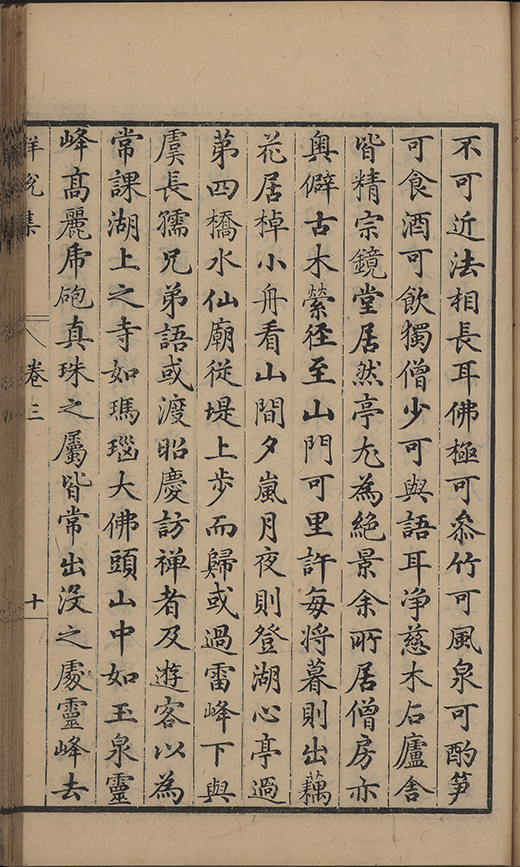 不可近法相長耳佛極可叅竹可風泉可酌笋
可食酒可飲獨僧少可與語耳净慈木石廬舎
皆精宗鏡堂居然亭尤為絶景余所居僧房亦
奥僻古木縈徑至山門可里許每將暮則出藕
花居棹小舟看山間夕嵐月夜則登湖心亭過
苐四橋水仙廟從堤上步而歸或過雷峰下與
虞長孺兄弟語或渡昭慶訪禅者及遊客以為
常課湖上之寺如瑪瑙大佛頭山中如玉泉靈
峰髙麗虎砲真珠之屬皆常出没之處靈峰去
卷三
十